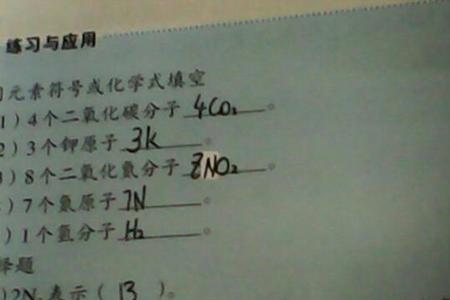 练习与应用
元素符号或化学式填空
1）4个二氧化碳分子 4CO₂ 。
2）3个钾原子 3K 。
）8个二氧化氮分子 8NO₂ 。
）7个氮原子 7N 。
）1个氢分子 H₂ 。
择题
2N 表示（ B ）。